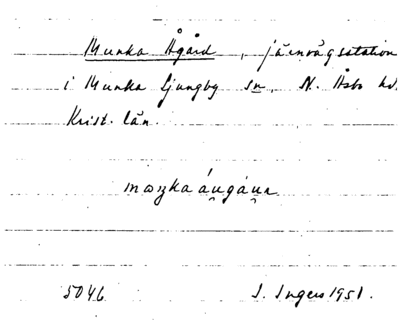 Munka Ågård, järnvägsstation
i Munka Ljungby sn, N. Åsbo hd,
Krist. län.
5046 I. Ingers 1951.